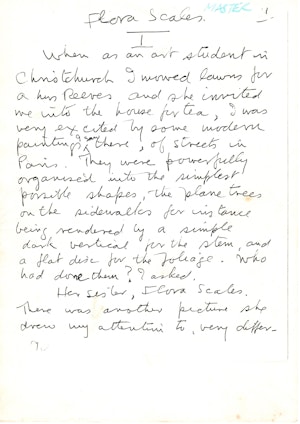 MASTER
1.
Flora Scales.
I
When as an art student in
Christchurch I mowed lawns for
a Miss Reeves and she invited
me into the house for tea, I was
very excited by some modern
paintings there, of streets in
Paris. They were powerfully
organised into the simplest
possible shapes, the plane trees
on the sidewalks for instance
being rendered by a simple
dark vertical for the stem, and
a flat disc for the foliage. Who
had done them? I asked.
Her sister, Flora Scales.
There was another picture she
drew my attention to, very differ-